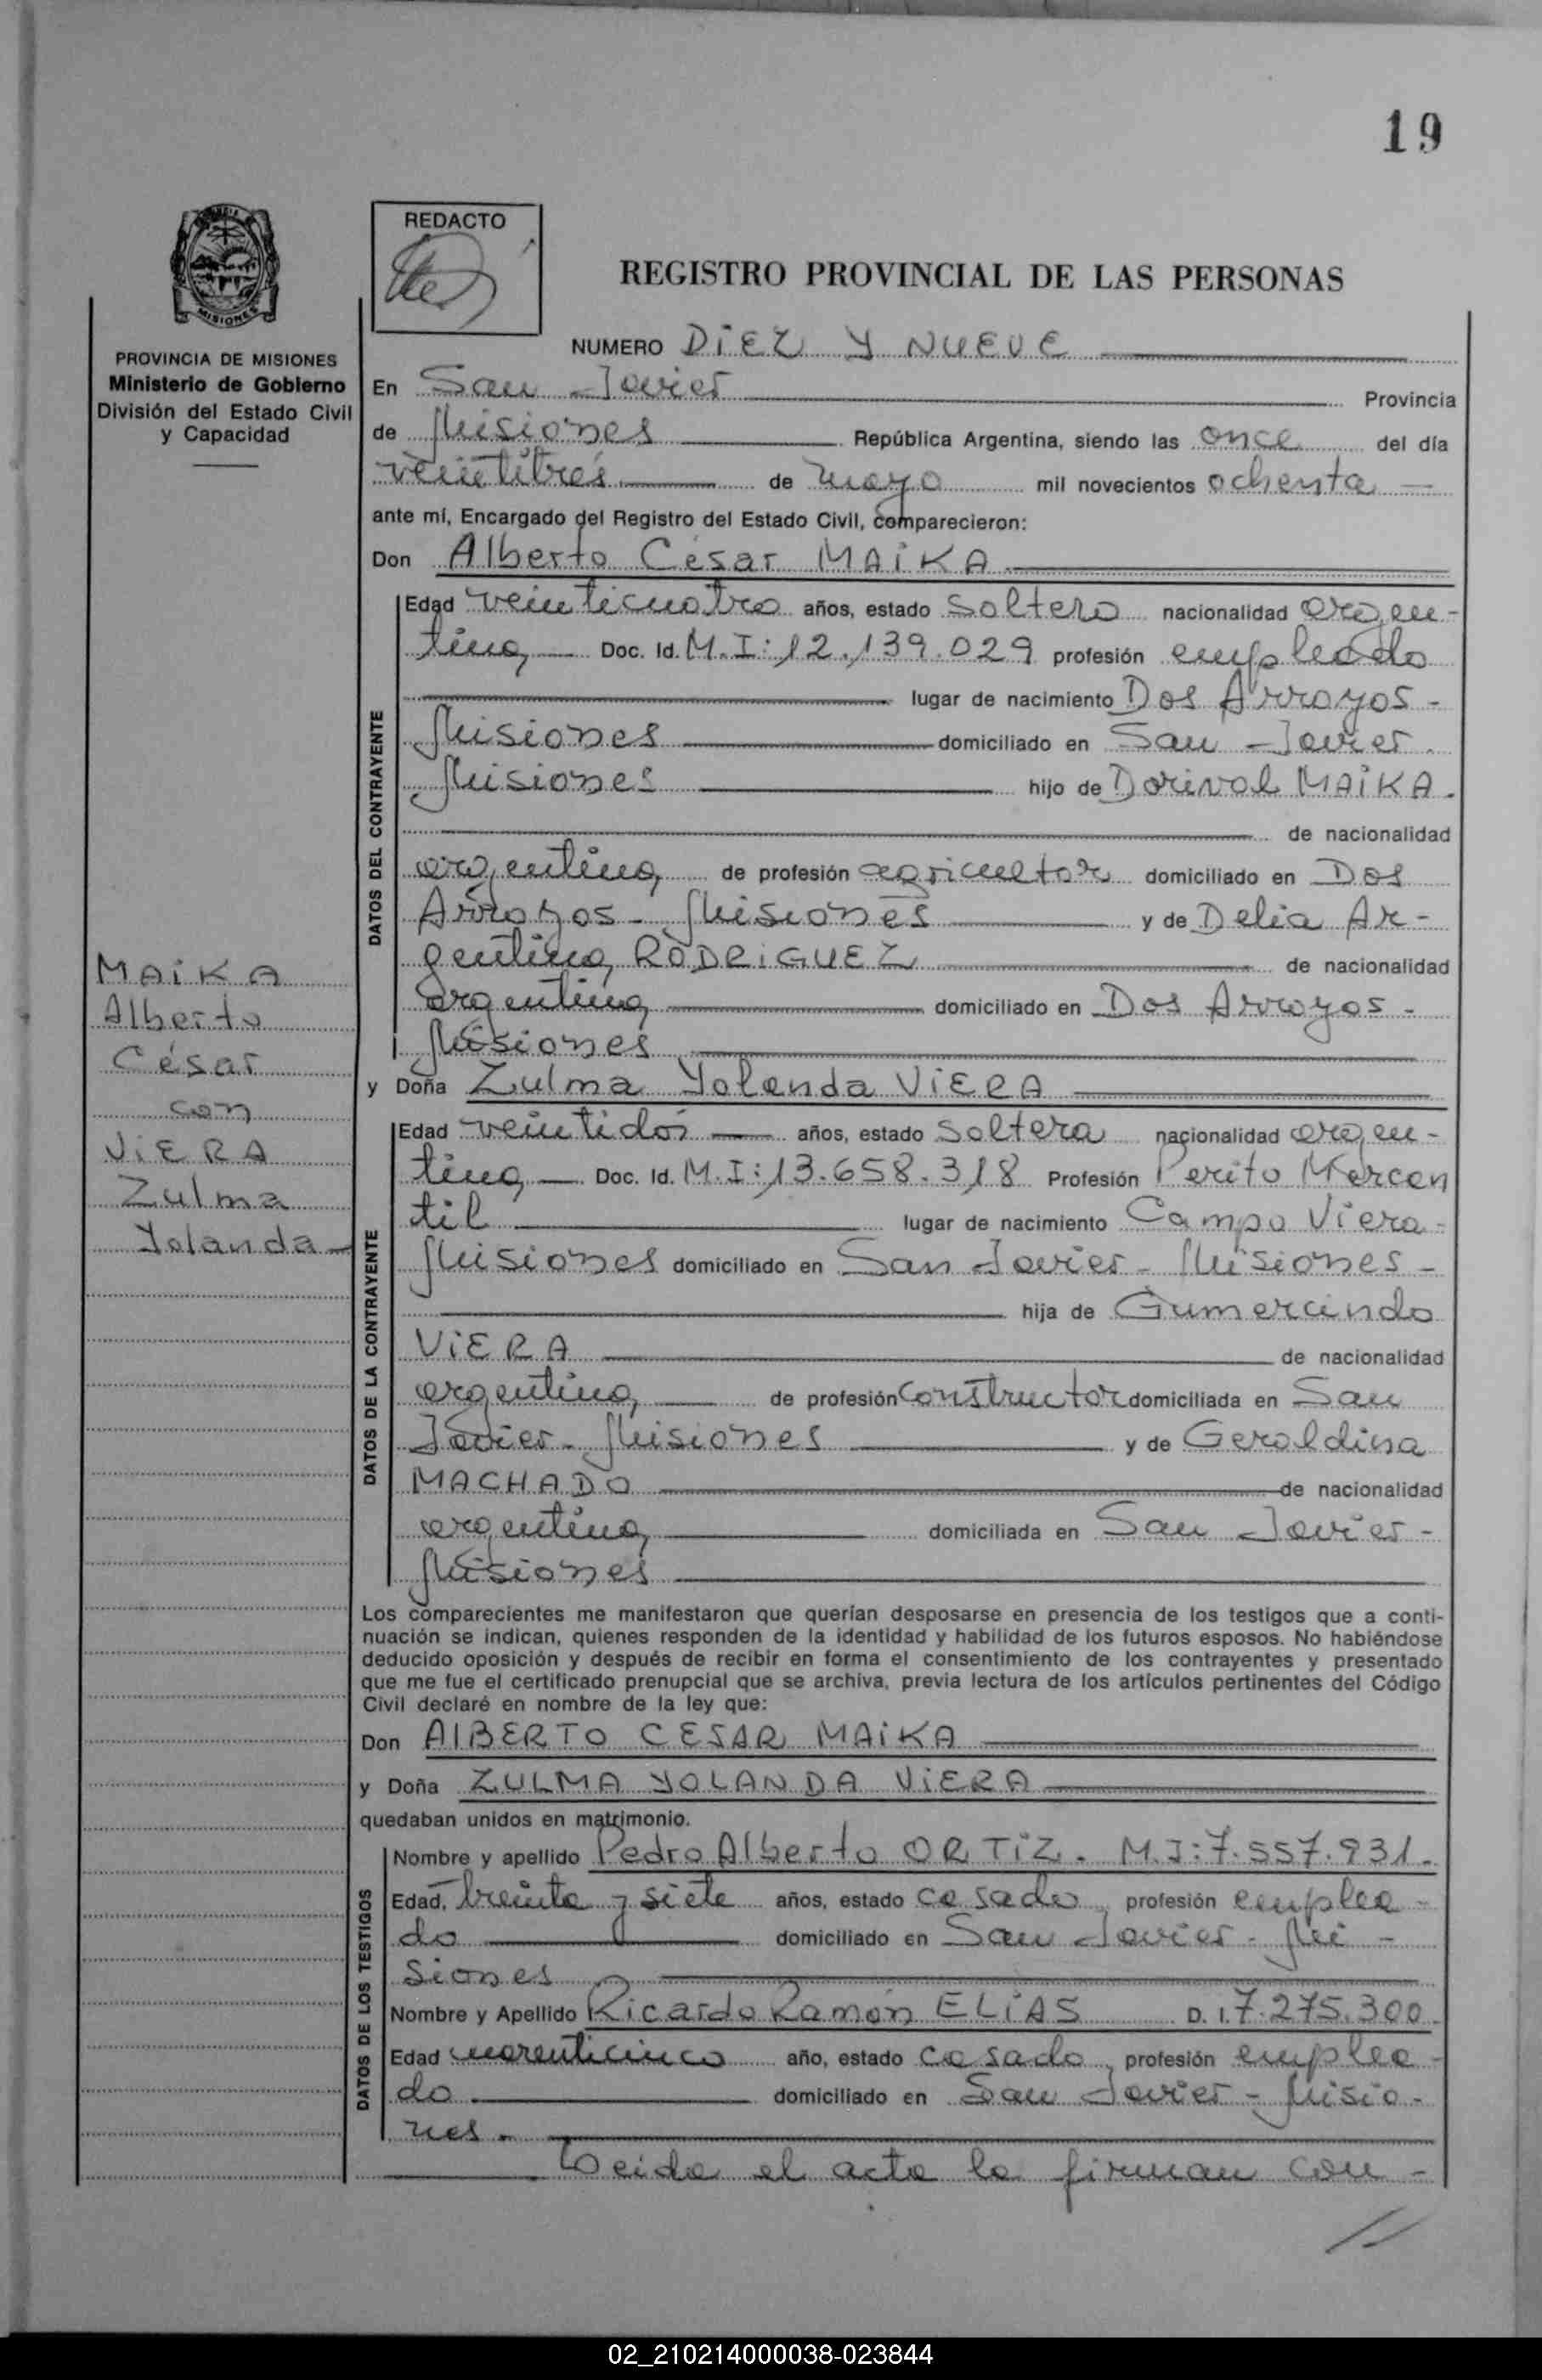 19
REDACTO
REGISTRO PROVINCIAL DE LAS PERSONAS
MISIONES
PROVINCIA DE MISIONES
Ministerio de Gobierno
División del Estado Civil
y Capacidad
NUMERO DIEZ Y NUEVE
En San Javier Provincia
de Misiones República Argentina, siendo las once del día
veintitrés de mayo mil novecientos ochenta
ante mí, Encargado del Registro del Estado Civil, comparecieron:
Don Alberto César MAIKA
DATOS DEL CONTRAYENTE
Edad veinticuatro años, estado soltero nacionalidad argen-
tina Doc. Id. M.I: 12.139.029 profesión empleado
lugar de nacimiento Dos Arroyos -
Misiones domiciliado en San Javier.
Misiones hijo de Dorival MAIKA.
de nacionalidad
argentina de profesión agricultor domiciliado en Dos
Arroyos - Misiones y de Delia Ar-
gentina RODRIGUEZ de nacionalidad
argentina domiciliado en Dos Arroyos -
Misiones
MAIKA
Alberto
César
con
VIERA
Zulma
Yolanda
y Doña Zulma Yolanda VIERA
DATOS DE LA CONTRAYENTE
Edad veintidós años, estado soltera nacionalidad argen-
tina Doc. Id. M.I: 13.658.318 Profesión Perito Mercan
til lugar de nacimiento Campo Viera -
Misiones domiciliado en San Javier - Misiones -
hija de Gumercindo
VIERA de nacionalidad
argentina de profesión constructor domiciliada en San
Javier - Misiones y de Geraldina
MACHADO de nacionalidad
argentina domiciliada en San Javier -
Misiones
Los comparecientes me manifestaron que querían desposarse en presencia de los testigos que a conti-
nuación se indican, quienes responden de la identidad y habilidad de los futuros esposos. No habiéndose
deducido oposición y después de recibir en forma el consentimiento de los contrayentes y presentado
que me fue el certificado prenupcial que se archiva, previa lectura de los artículos pertinentes del Código
Civil declaré en nombre de la ley que:
Don ALBERTO CESAR MAIKA
y Doña ZULMA YOLANDA VIERA
quedaban unidos en matrimonio.
DATOS DE LOS TESTIGOS
Nombre y apellido Pedro Alberto ORTIZ. M.I: 7.557.931.
Edad, treinta y siete años, estado casado, profesión emplea-
do domiciliado en San Javier - Mi-
siones
Nombre y Apellido Ricardo Ramón ELIAS D. I. 7.275.300
Edad cuarenticinco año, estado casado, profesión emplea-
do domiciliado en San Javier - Misio-
nes.
Leida el acta la firman con -
02_210214000038-023844